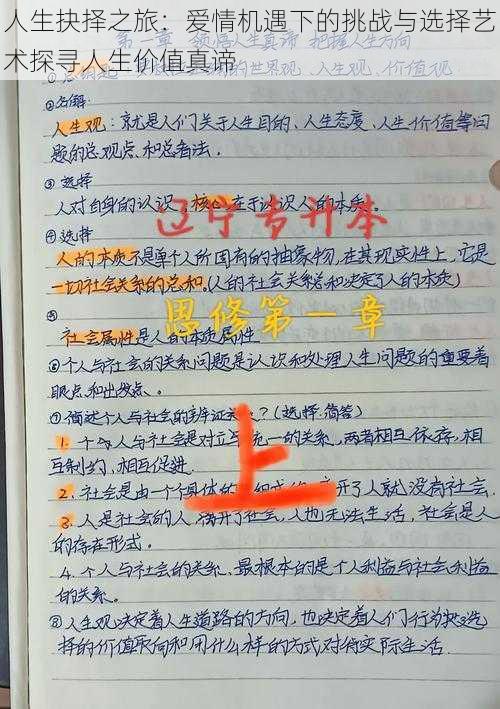 人生抉择之旅：爱情机遇下的挑战与选择艺
术探寻人生价值真谛
第一章 领悟人生真谛 把握人生方向
的世界观、人生观、价值观
②名解
人生观：就是人们关于人生目的、人生态度、人生价值等问
题的总观点和总看法。
③选择
人对自身的认识，核心在于认识人的本质。
辽宁专升本
④选择
人的本质不是单个人所固有的抽象物，在其现实性上，它是
一切社会关系的总和。(人的社会关系总和决定了人的本质)
思修第一章
⑤
社会属性是人的本质属性
⑥个人与社会的关系问题是认识和处理人生问题的重要着
眼点和出发点。
⑦简述个人与社会的辩证关系？(选择.简答)
上
1. 个人与社会是对立与统一的关系，两者相互依存，相
互制约，相互促进.
2. 社会是由一个个具体的人组成的，离开了人就没有社会.
3. 人是社会的人，离开了社会，人也无法生活，社会是人
的存在形式.
4. 个人与社会的关系、最根本的是个人利益与社会利益
的关系.
⑧人生观决定着人生道路的方向，也决定着人们行为选
择的价值取向和用什么样的方式对待实际生活.